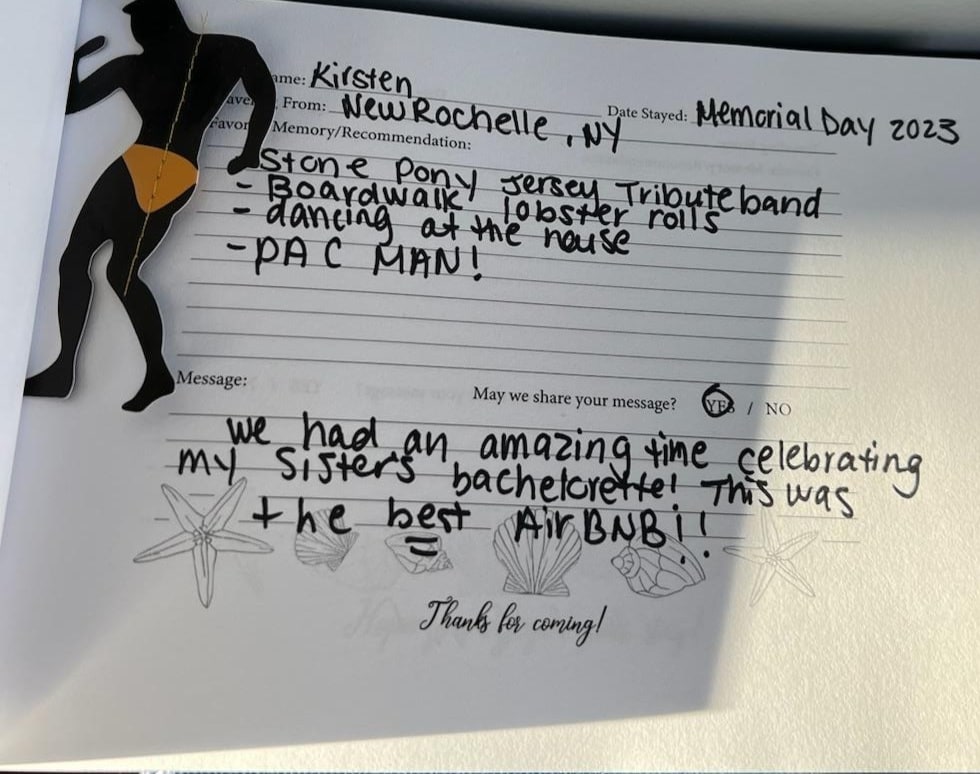 ame: Kirsten
ave From: New Rochelle, NY Date Stayed: Memorial Day 2023
Favor Memory/Recommendation:
Stone Pony Jersey Tribute band
- Boardwalk, lobster rolls
- dancing at the house
- PAC MAN!
Message: May we share your message? YES / NO
We had an amazing time celebrating
my sister's bachelorette! This was
the best AirBNB!!!
Thanks for coming!